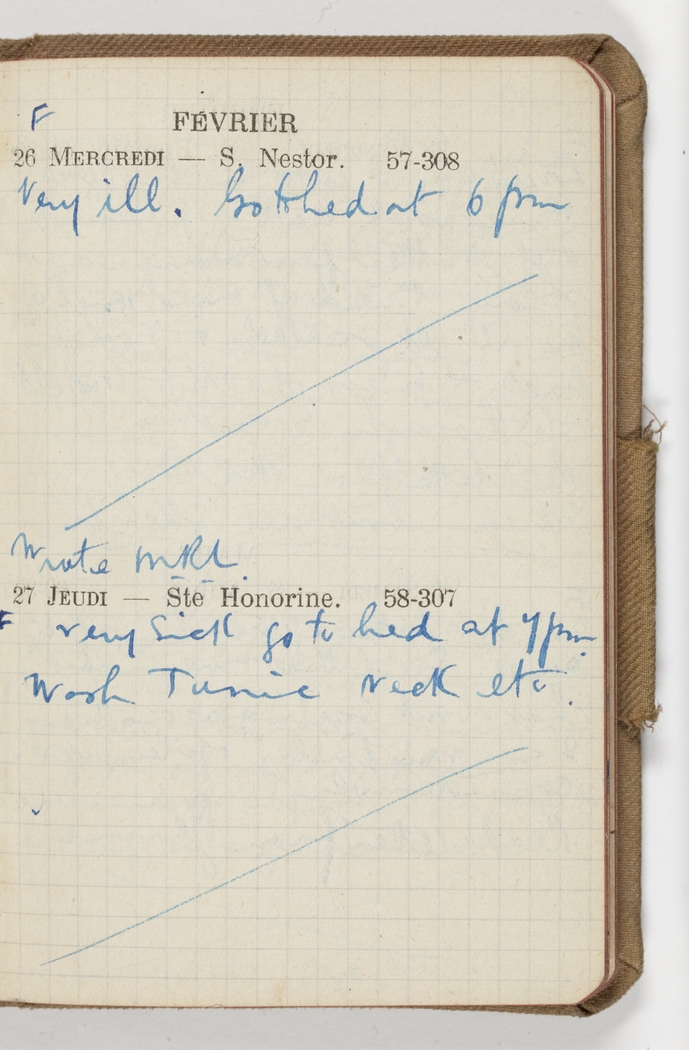 F
FÉVRIER
26 MERCREDI — S. Nestor. 57-308
Very ill. Go to bed at 6 pm
Wrote MRL.
27 JEUDI — Ste Honorine. 58-307
F very Sick go to bed at 7pm.
Wash Tunic neck etc.